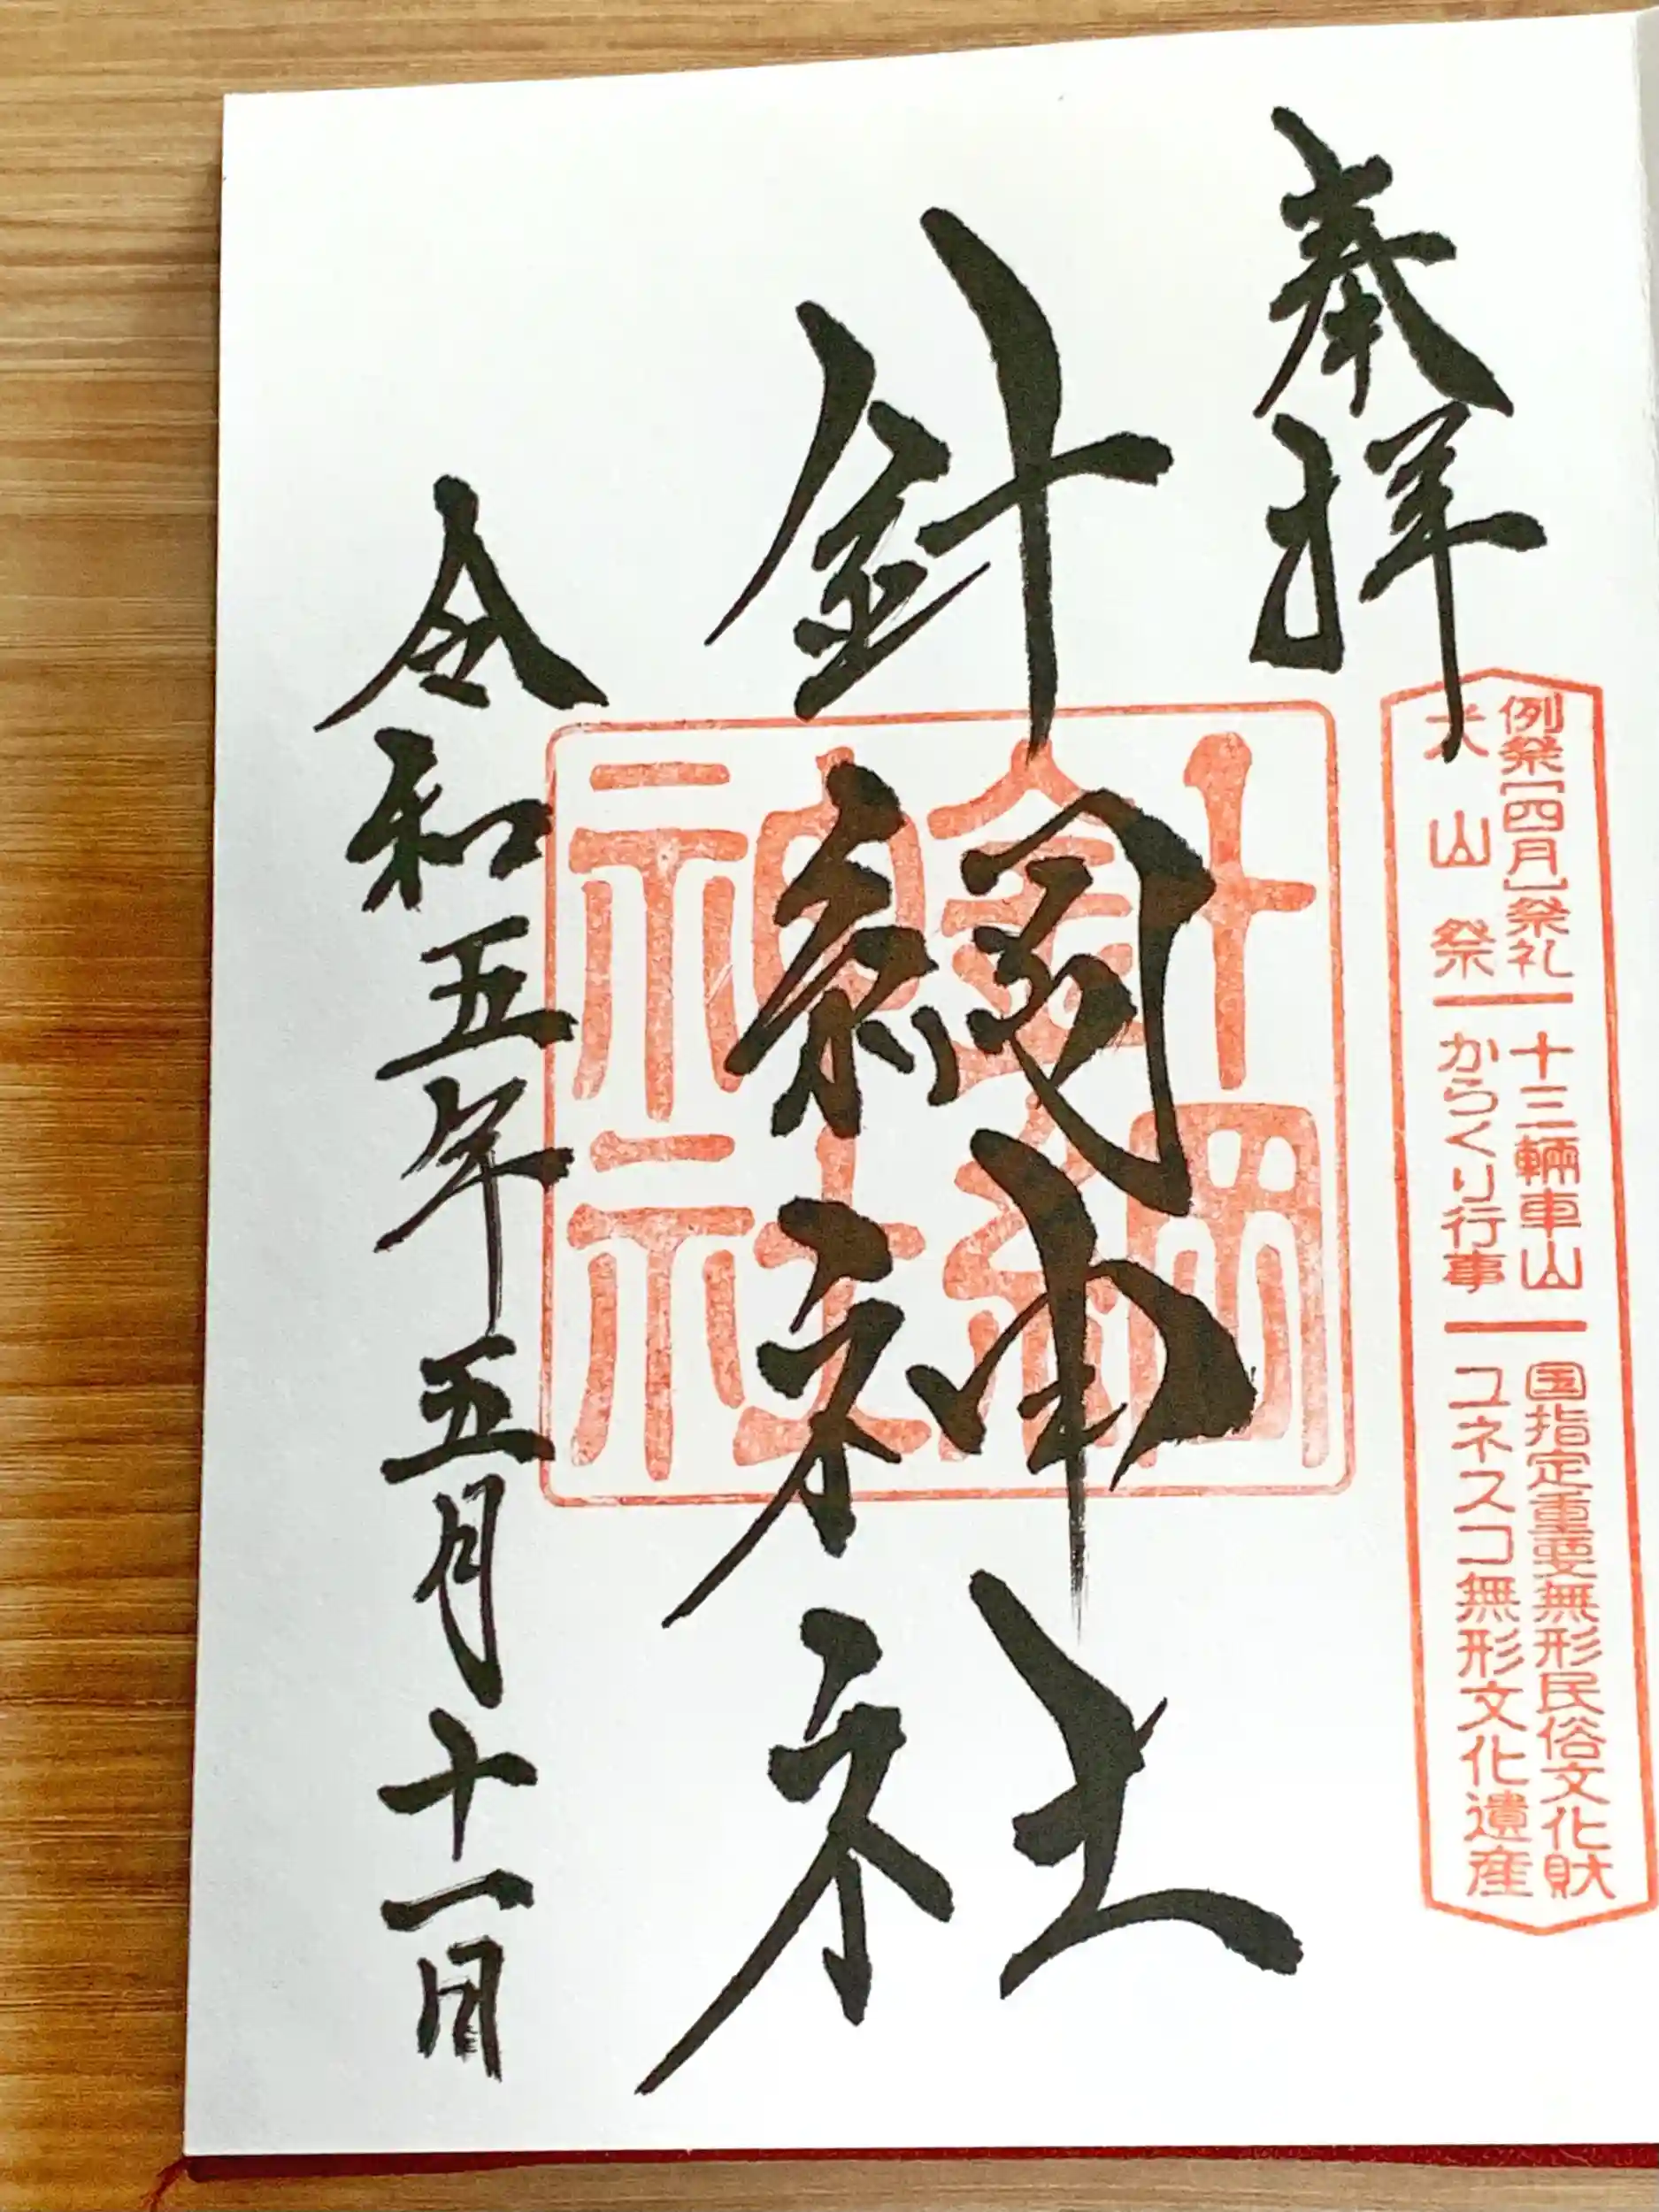 奉拝
例祭[四月]祭礼 十三輛車山 国指定重要無形民俗文化財
犬山祭 からくり行事 ユネスコ無形文化遺産
針綱神社
針綱
神社
令和五年五月十一日